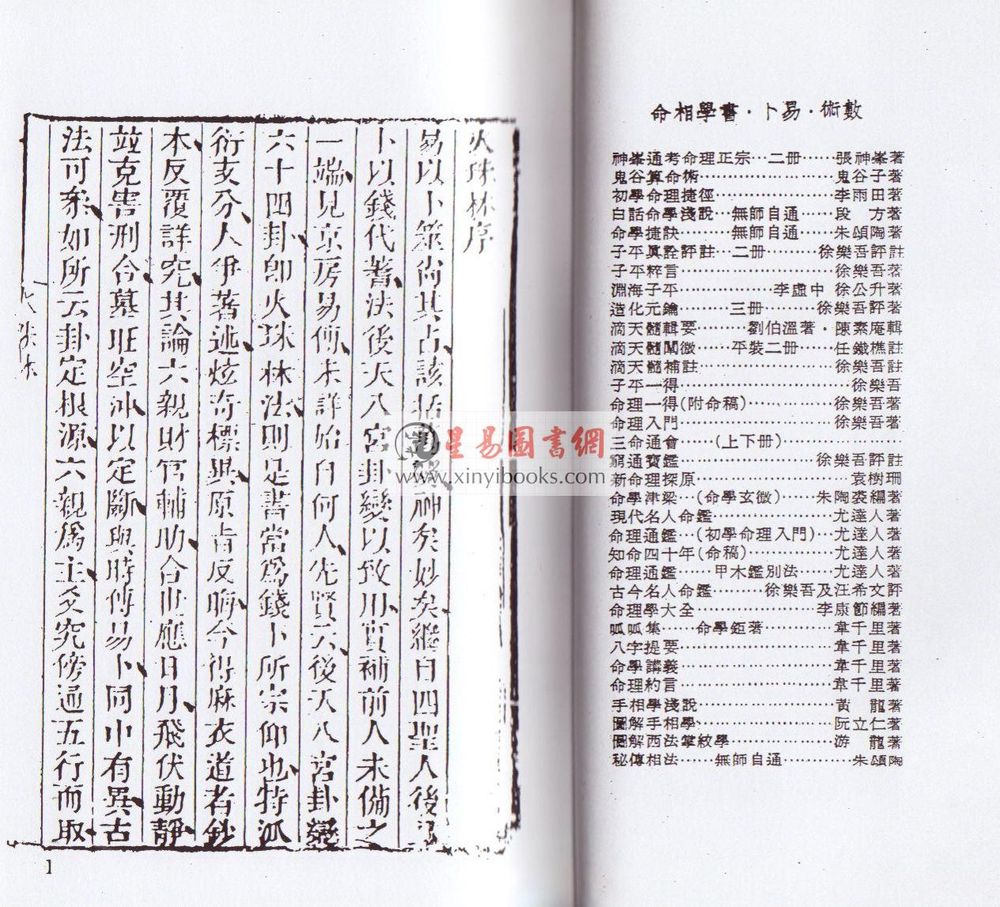 火珠林序
易以卜筮尚其占該括萬象神矣妙矣繼自四聖人後
卜以錢代蓍法後天八宮卦變以致用實補前人未備之
一端見京房易傳未詳始自何人先賢云後天八宮卦變
六十四卦即火珠林法則是書當爲錢卜所宗仰也特派
衍支分人爭著述炫奇標異原旨反晦今得麻衣道者鈔
本反覆詳究其論六親財官輔助合世應日月飛伏動靜
竝克害刑合墓旺空冲以定斷與時傳易卜同中有異古
法可參如所云卦定根源六親爲主爻究傍通五行而取
火珠林
1
命相學書·卜易·術數
神峯通考命理正宗…二册……張神峯著
鬼谷算命術………………鬼谷子著
初學命理捷徑……………李雨田著
白話命學淺說…無師自通……段　方著
命學捷訣……無師自通……朱頌陶著
子平眞詮評註…二册……徐樂吾評註
子平粹言…………………徐樂吾著
淵海子平……………李虛中 徐公升著
造化元鑰………三册……徐樂吾評著
滴天髓輯要………劉伯溫著·陳素庵輯
滴天髓闡微……平裝二册……任鐵樵註
滴天髓補註………………徐樂吾註
子平一得…………………徐樂吾
命理一得(附命稿)…………徐樂吾著
命理入門…………………徐樂吾著
三命通會……(上下册)……………
窮通寶鑑………………徐樂吾評註
新命理探原………………袁樹珊
命學津梁…(命學玄微)……朱陶裘編著
現代名人命鑑……………尤達人著
命理通鑑…(初學命理入門)…尤達人著
知命四十年(命稿)…………尤達人著
命理通鑑……甲木鑑別法……尤達人著
古今名人命鑑………徐樂吾及汪希文評
命理學大全……………李康節編著
呱呱集……命學鉅著………韋千里著
八字提要…………………韋千里著
命學講義…………………韋千里著
命理約言…………………韋千里著
手相學淺說………………黃　龍著
圖解手相學………………阮立仁著
圖解西法掌紋學……………游　龍著
秘傳相法……無師自通………朱頌陶
星易圖書網
www.xinyibooks.com